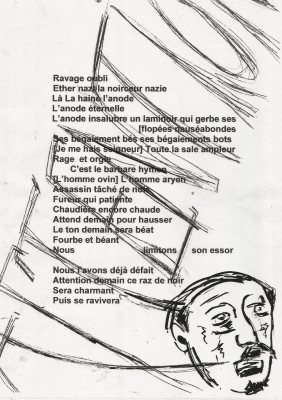 Ravage oubli
Ether nazi la noirceur nazie
Là La haine l'anode
L'anode éternelle
L'anode insalubre un laminoir qui gerbe ses
[flopées nauséabondes
Ses bégaiement bés ses bégaiements bots
"Je me hais seigneur] Toute la sale ampleur
Rage et orgie
C'est le barbare hymen
[L'homme ovin] L'homme aryen
Assassin tâché de noir
Fureur qui patiente
Chaudière encore chaude
Attend demain pour hausser
Le ton demain sera béat
Fourbe et béant
Nous limitons son essor
Nous l'avons déjà défait
Attention demain ce raz de noir
Sera charmant
Puis se ravivera